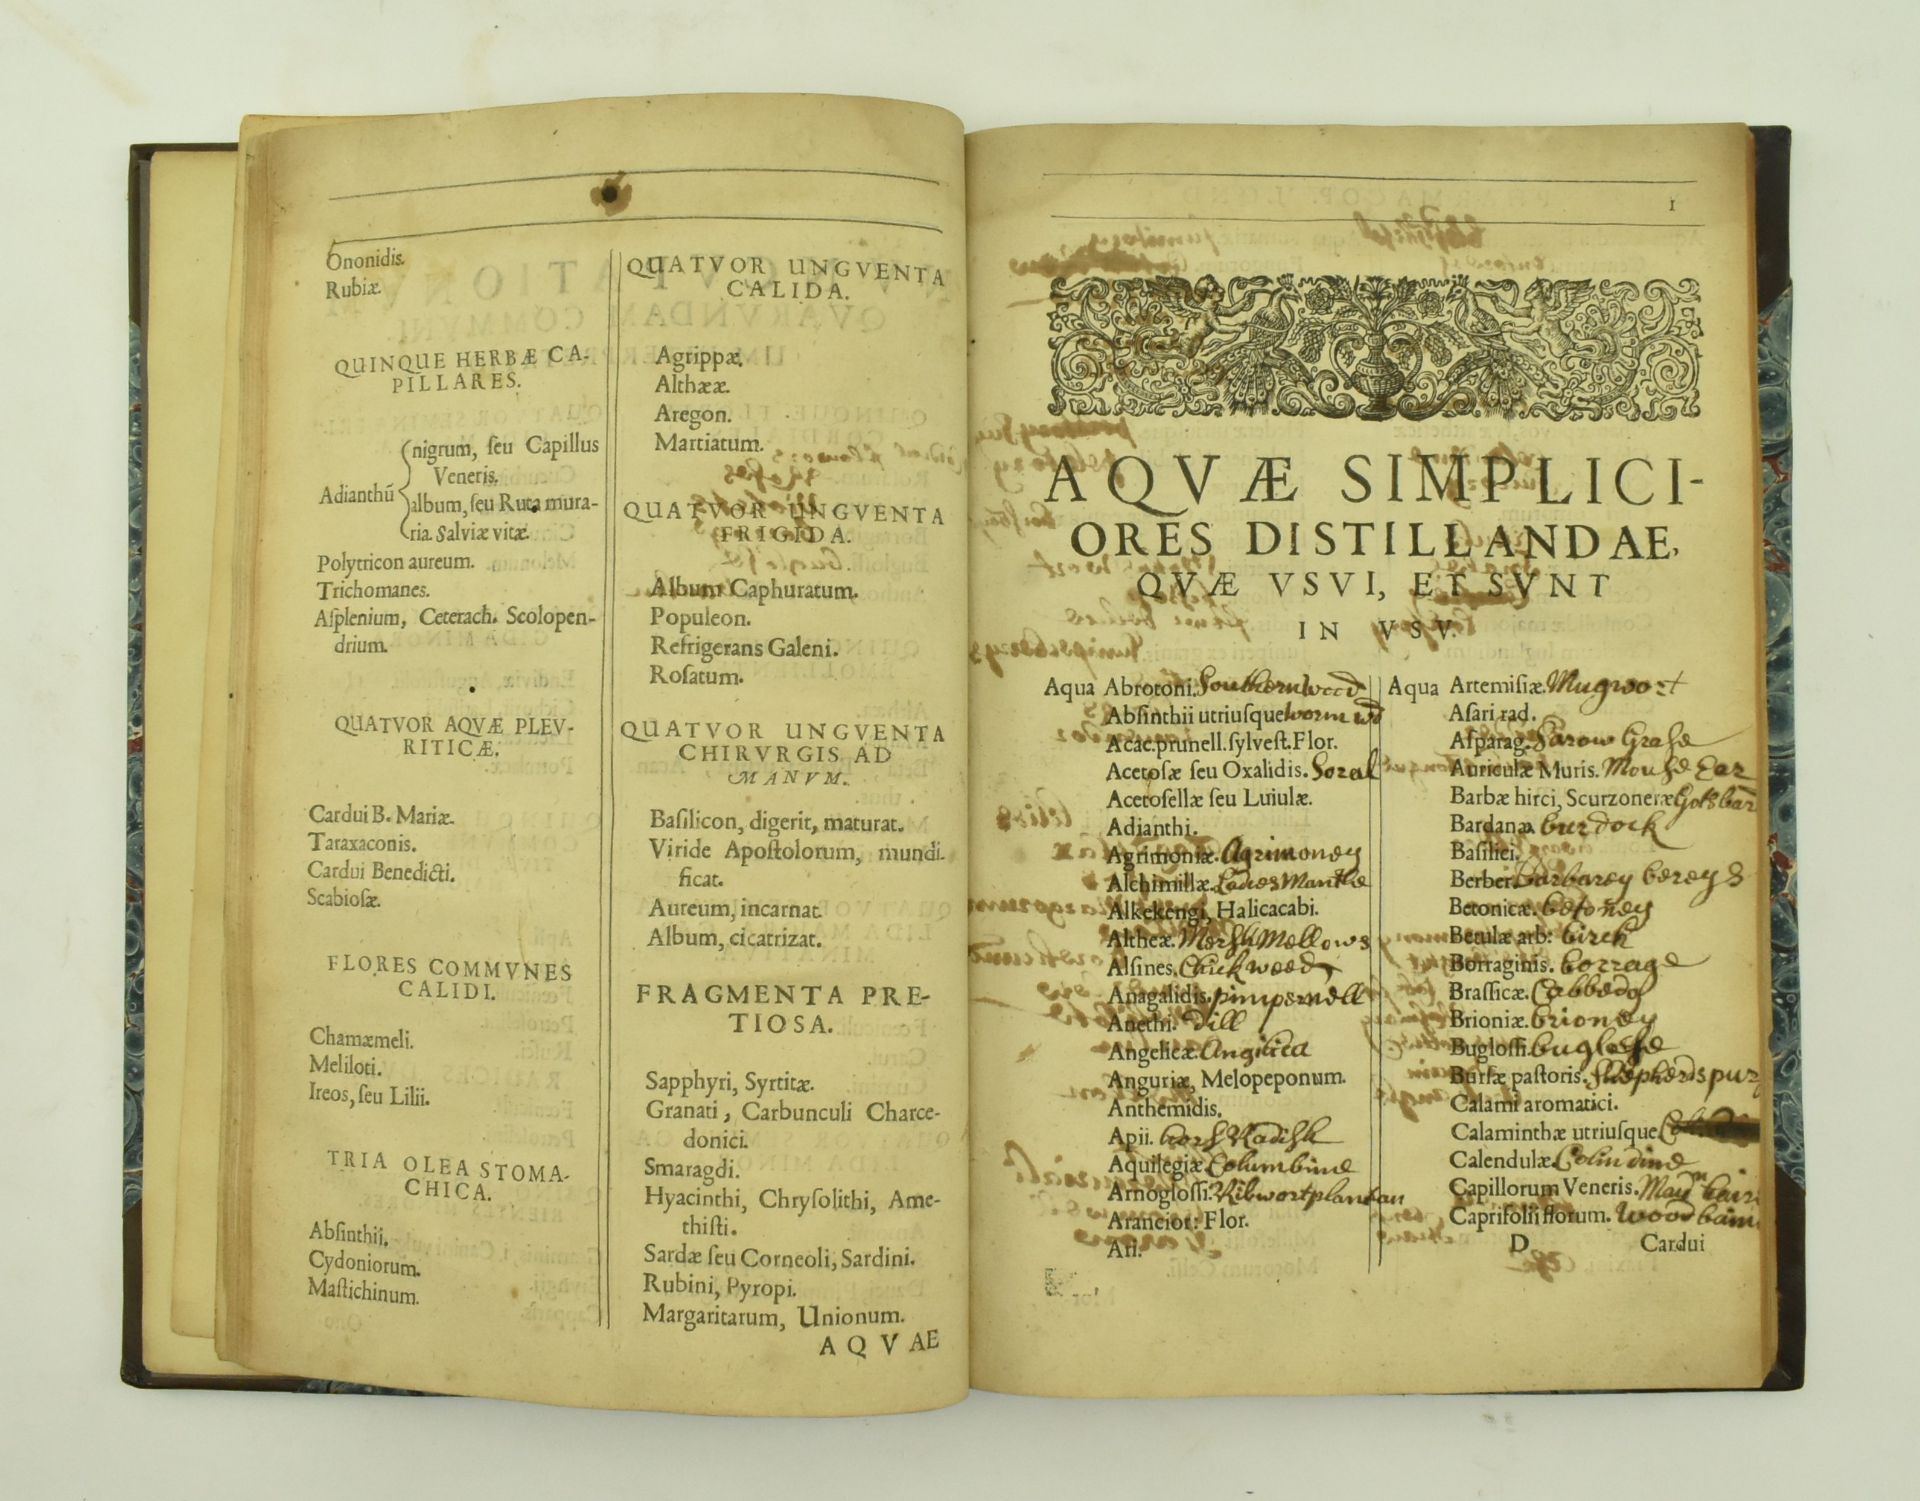 Ononidis.
Rubiæ.
QUINQUE HERBÆ CA-
PILLARES.
nigrum, ſeu Capillus
Veneris.
Adianthū
album, ſeu Ruta mura-
ria. Salviæ vitæ.
Polytricon aureum.
Trichomanes.
Aſplenium, Ceterach. Scolopen-
drium.
QUATVOR AQVÆ PLEV-
RITICÆ.
Cardui B. Mariæ.
Taraxaconis.
Cardui Benedicti.
Scabioſæ.
FLORES COMMVNES
CALIDI.
Chamæmeli.
Meliloti.
Ireos, ſeu Lilii.
TRIA OLEA STOMA-
CHICA.
Abſinthii.
Cydoniorum.
Maſtichinum.
QUATVOR UNGVENTA
CALIDA.
Agrippæ.
Althææ.
Aregon.
Martiatum.
QUATVOR UNGVENTA
FRIGIDA.
Album Caphuratum.
Populeon.
Refrigerans Galeni.
Roſatum.
QUATVOR UNGVENTA
CHIRVRGIS AD
MANVM.
Baſilicon, digerit, maturat.
Viride Apoſtolorum, mundi-
ficat.
Aureum, incarnat.
Album, cicatrizat.
FRAGMENTA PRE-
TIOSA.
Sapphyri, Syrtitæ.
Granati, Carbunculi Charce-
donici.
Smaragdi.
Hyacinthi, Chryſolithi, Ame-
thiſti.
Sardæ ſeu Corneoli, Sardini.
Rubini, Pyropi.
Margaritarum, Unionum.
AQVAE
1
AQVÆ SIMPLICI-
ORES DISTILLANDAE,
QVÆ VSVI, ET SVNT
IN VSV.
Aqua Abrotoni. Southernwood
Abſinthii utriuſque worm wd
Acac. prunell. ſylveſt. Flor.
Acetoſæ ſeu Oxalidis. Sorel
Acetoſellæ ſeu Luiulæ.
Adianthi.
Agrimoniæ. Agrimoney
Alchimillæ. Ladies Mantle
Alkekengi, Halicacabi.
Altheæ. Mersh Mellows
Alſines. Chickweed
Anagalidis. pimpernell
Anethi. Dill
Angelicæ. Angilica
Anguriæ, Melopeponum.
Anthemidis.
Apii. hors Radish
Aquilegiæ Columbine
Arnogloſſi. Ribwort plantan
Arancior: Flor.
Ari.
Aqua Artemiſiæ. Mugwort
Aſari rad.
Aſparag. Sarow Graſe
Auriculæ Muris. Mouse Ear
Barbæ hirci, Scurzoneræ Gotsbar
Bardanæ. burdock
Baſilici.
Berber. barbarey bereys
Betonicæ. betoney
Betulæ arb: birch
Borraginis. borrage
Braſſicæ. Cabbedg
Brioniæ. brioney
Bugloſſi. buglosse
Burſæ paſtoris. Sheepherds pur
Calami aromatici.
Calaminthæ utriuſque
Calendulæ
Capillorum Veneris. Mayden hair
Caprifolii florum. wood bain
D Cardui